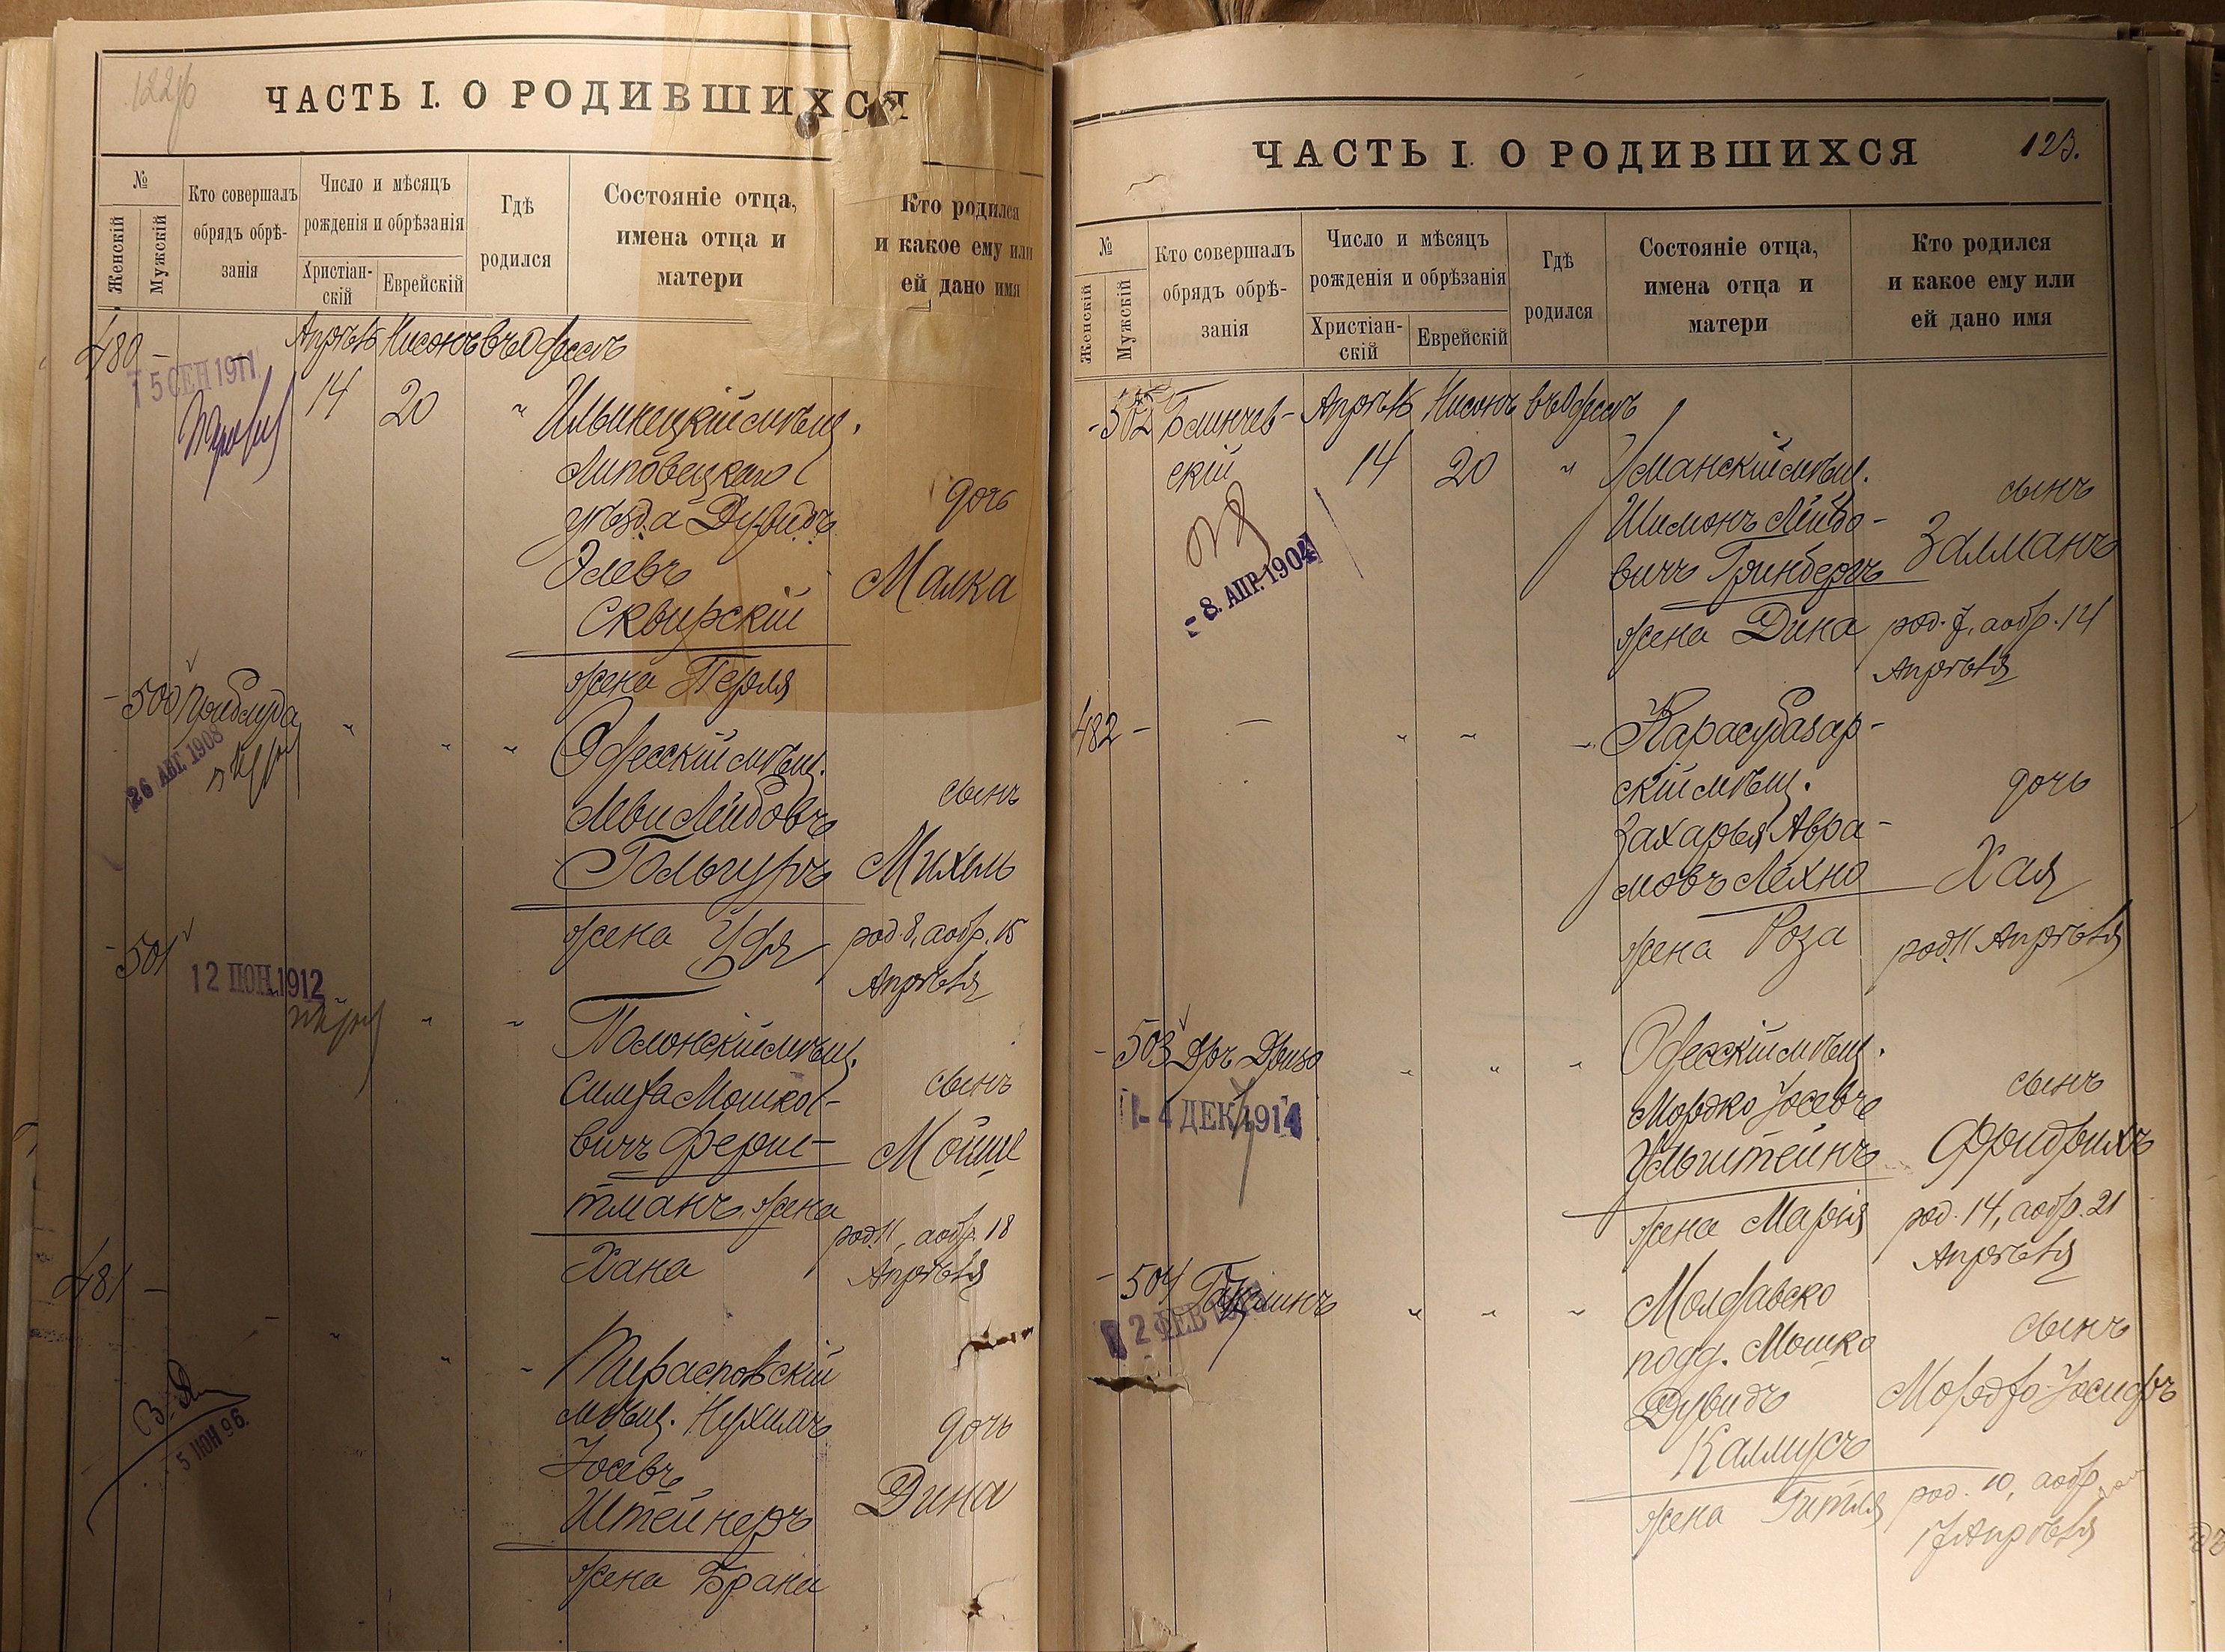 ЧАСТЬ I. О РОДИВШИХСЯ
№
Женскій
Мужскій
Кто совершалъ
обрядъ обрѣ-
занія
Число и мѣсяцъ
рожденія и обрѣзанія
Христіан-
скій
Еврейскій
Гдѣ
родился
Состояніе отца,
имена отца и
матери
Кто родился
и какое ему или
ей дано имя
480 - - Апрѣль Нисонъ въ Одессѣ
5 СЕН 1911
14 20 " Ильинецкій мѣщ.
Липовецкаго
уѣзда Дувидъ
дочь
Элевъ
Малка
Сквирскій
жена Перля
- 500 Приблуда " " "
26 АВГ. 1908
Одесскій мѣщ.
Леви Лейбовъ
сынъ
Гольгуръ
Михель
жена Удя
род. 8, а обр. 15
Апрѣля
- 501 " "
12 ІЮН. 1912
Полонскій мѣщ.
Симха Мошко-
сынъ
вичъ Ферш-
Мойше
тманъ, жена
род. 11, а обр. 18
Хана
Апрѣля
481 - - " " "
5 ІЮН 96.
Тираспольскій
мѣщ. Нухимъ
дочь
Іосевъ
Дина
Штейнеръ
жена Брана
ЧАСТЬ I. О РОДИВШИХСЯ
123.
№
Женскій
Мужскій
Кто совершалъ
обрядъ обрѣ-
занія
Число и мѣсяцъ
рожденія и обрѣзанія
Христіан-
скій
Еврейскій
Гдѣ
родился
Состояніе отца,
имена отца и
матери
Кто родился
и какое ему или
ей дано имя
- 502 Блинчев- Апрѣль Нисонъ въ Одессѣ
скій 14 20 " Уманскій мѣщ.
сынъ
Шимонъ Лейбо-
Залманъ
- 8. АПР. 1904
вичъ Гринбергъ
жена Дина
род. 7, а обр. 14
Апрѣля
482 - - " " "
Карасубазар-
скій мѣщ.
дочь
Захарья Авра-
мовъ Лехно
Хая
жена Роза
род. 11 Апрѣля
- 503 Дръ Дризо " " "
- 4 ДЕК 1914
Одесскій мѣщ.
Мордко Іосевъ
сынъ
Ульштейнъ
Фридрихъ
жена Марія
род. 14, а обр. 21
Апрѣля
- 504 " " "
2 ФЕВ
Молдавско
подд. Мошко
сынъ
Дувидъ
Мордко-Іосифъ
Калмусъ
жена Гитля
род. 10, а обр.
17 Апрѣля